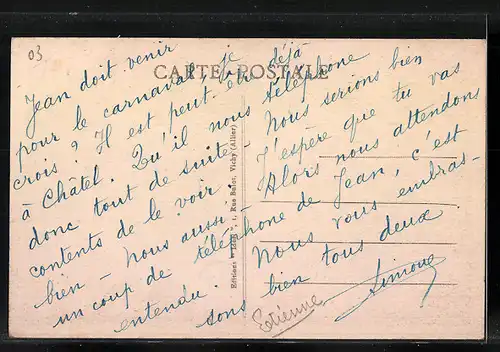 03
CARTE POSTALE
Jean doit venir
pour le carnaval, je
crois ? Il est peut-être déjà
à Châtel. Qu'il nous téléphone
donc tout de suite - Nous serions bien
contents de le voir. J'espère que tu vas
bien - Nous aussi - Alors nous attendons
un coup de téléphone de Jean, c'est
entendu. Nous vous embras-
sons bien tous deux
Simone
Etienne
Editions 1, Rue Vichy (Allier)